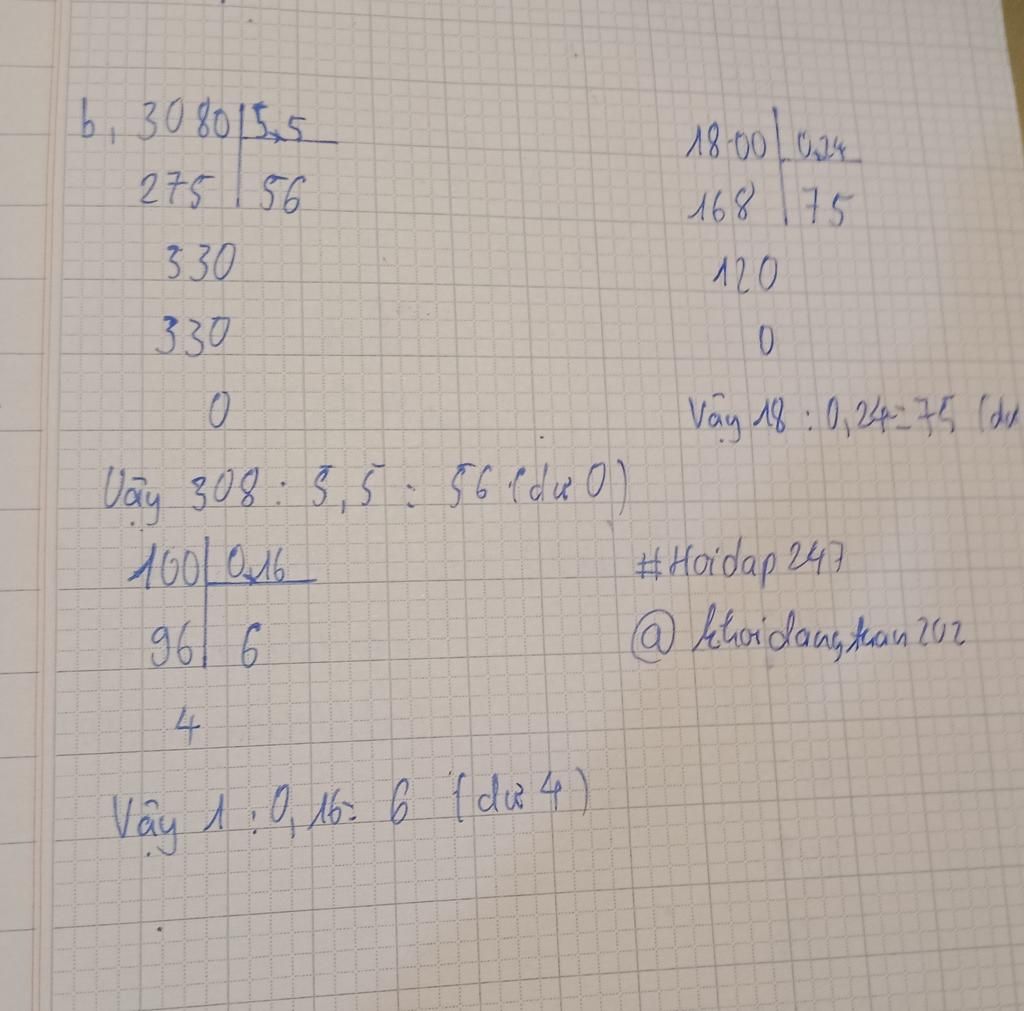 b, 3080 5,5
275 56
330
330
0
Vậy 308 : 5,5 = 56 (dư 0)
18.00 0,24
168 75
120
0
Vậy 18 : 0,24 = 75 (dư
100 0,16
96 6
4
Vậy 1 : 0,16 = 6 (dư 4)
#Hoidap247
@khoidangtuan202